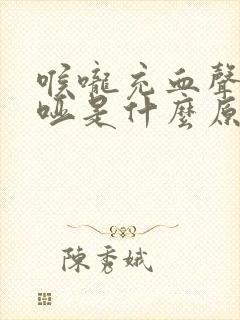 喉嚨充血聲
啞是什麼原
陳秀娥